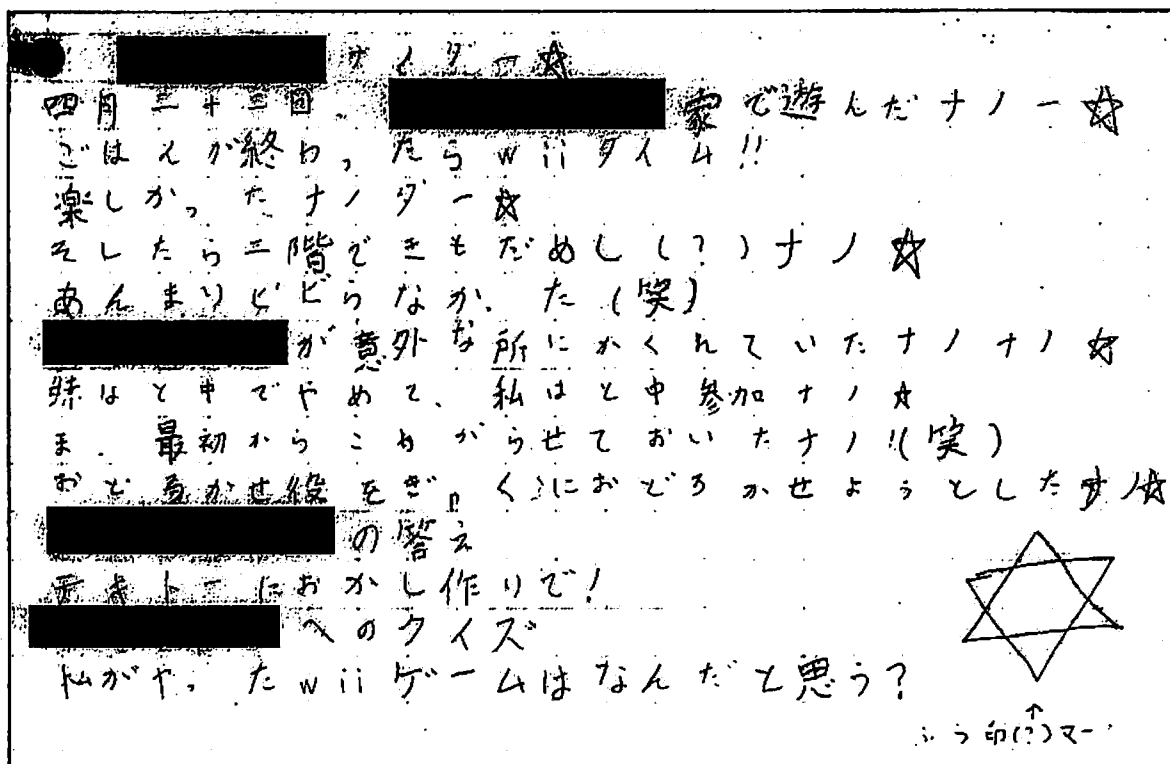 サイダー☆
四月三十三回 家で遊んだナノー☆
ごはんが終わったらwiiタイム!!
楽しかったナノダー☆
そしたら二階できもだめし(?)ナノ☆
あんまりビビらなかった(笑)
が意外な所にかくれていたナノナノ☆
はと中でやめて、私はと中参加ナノ☆
ま、最初からこわがらせておいたナノ!(笑)
おどろかせ役をぎゃくにおどろかせようとしたナノ☆
の答え
テキトーにおかし作りで!
へのクイズ
私がやったwiiゲームはなんだと思う?
↑
ふう印(?)マー